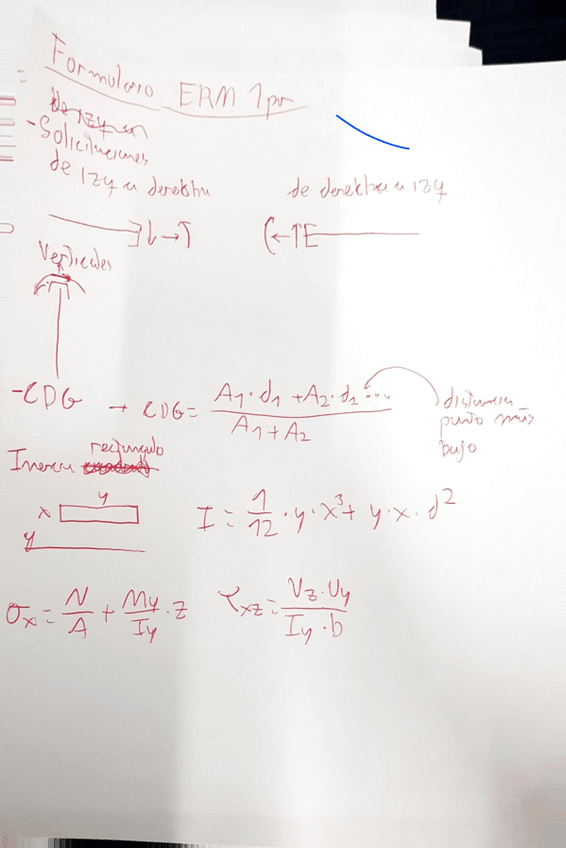 Formulario ERM 1pr
- Solicitaciones
de Izq a derecha
de derecha a izq
Verticales
- CDG → CDG = (A1·d1 + A2·d2 ...) / (A1 + A2)
distancia
punto más
bajo
Inercia rectangulo
y
x
y
I = 1/12 · y · x³ + y · x · d²
σx = N/A + My/Iy · z
τxz = Vz·Uy / Iy·b